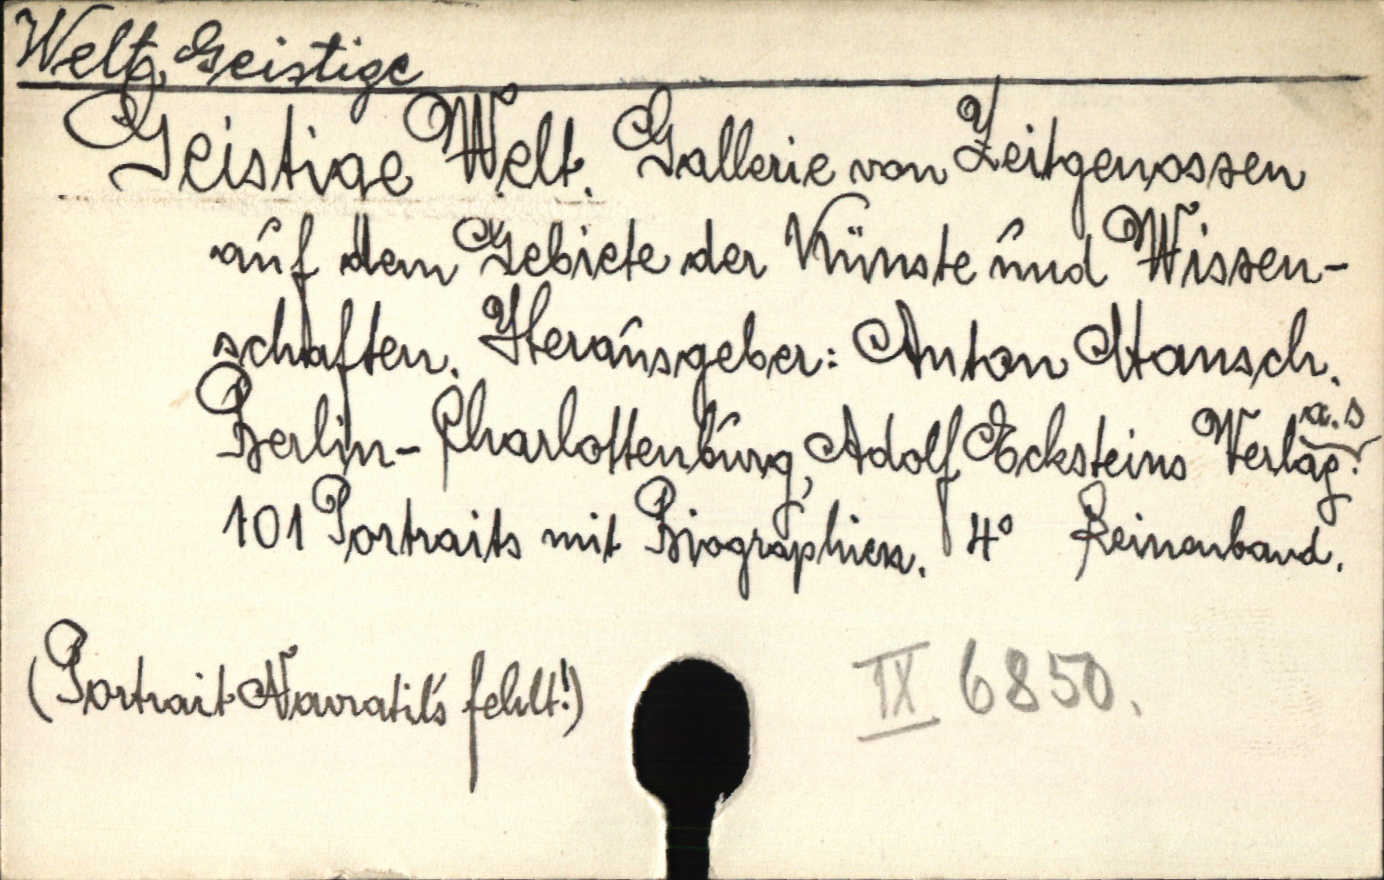 Welt, Geistige
Geistige Welt. Gallerie von Zeitgenossen
auf dem Gebiete der Künste und Wissen-
schaften. Herausgeber: Anton Mansch.
Berlin-Charlottenburg, Adolf Ecksteins Verlag. a.s
101 Portraits mit Biographien. 4° Leinenband.
(Portrait Navratil's fehlt!)
IX 6850.